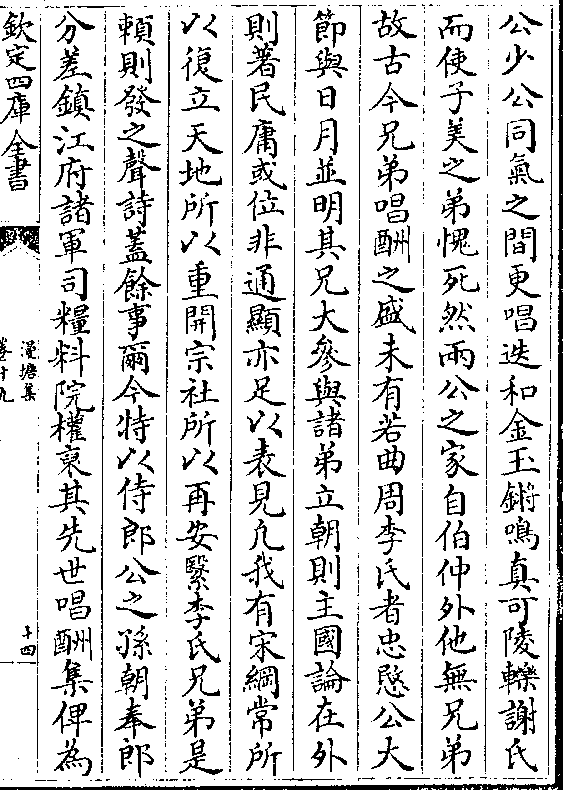 公少公同氣之間更唱迭和金玉鏘鳴真可陵轢謝氏
而使子美之弟愧死然兩公之家自伯仲外他無兄弟
故古今兄弟唱酬之盛未有若曲周李氏者忠愍公大
節與日月並明其兄大參與諸弟立朝則主國論在外
則著民庸或位非通顯亦足以表見凡我有宋綱常所
以復立天地所以重開宗社所以再安繄李氏兄弟是
賴則發之聲詩蓋餘事爾今特以侍郎公之孫朝奉郎
分差鎮江府諸軍司糧料院權裒其先世唱酬集俾為
欽定四庫全書
漫塘集
卷十九
十四